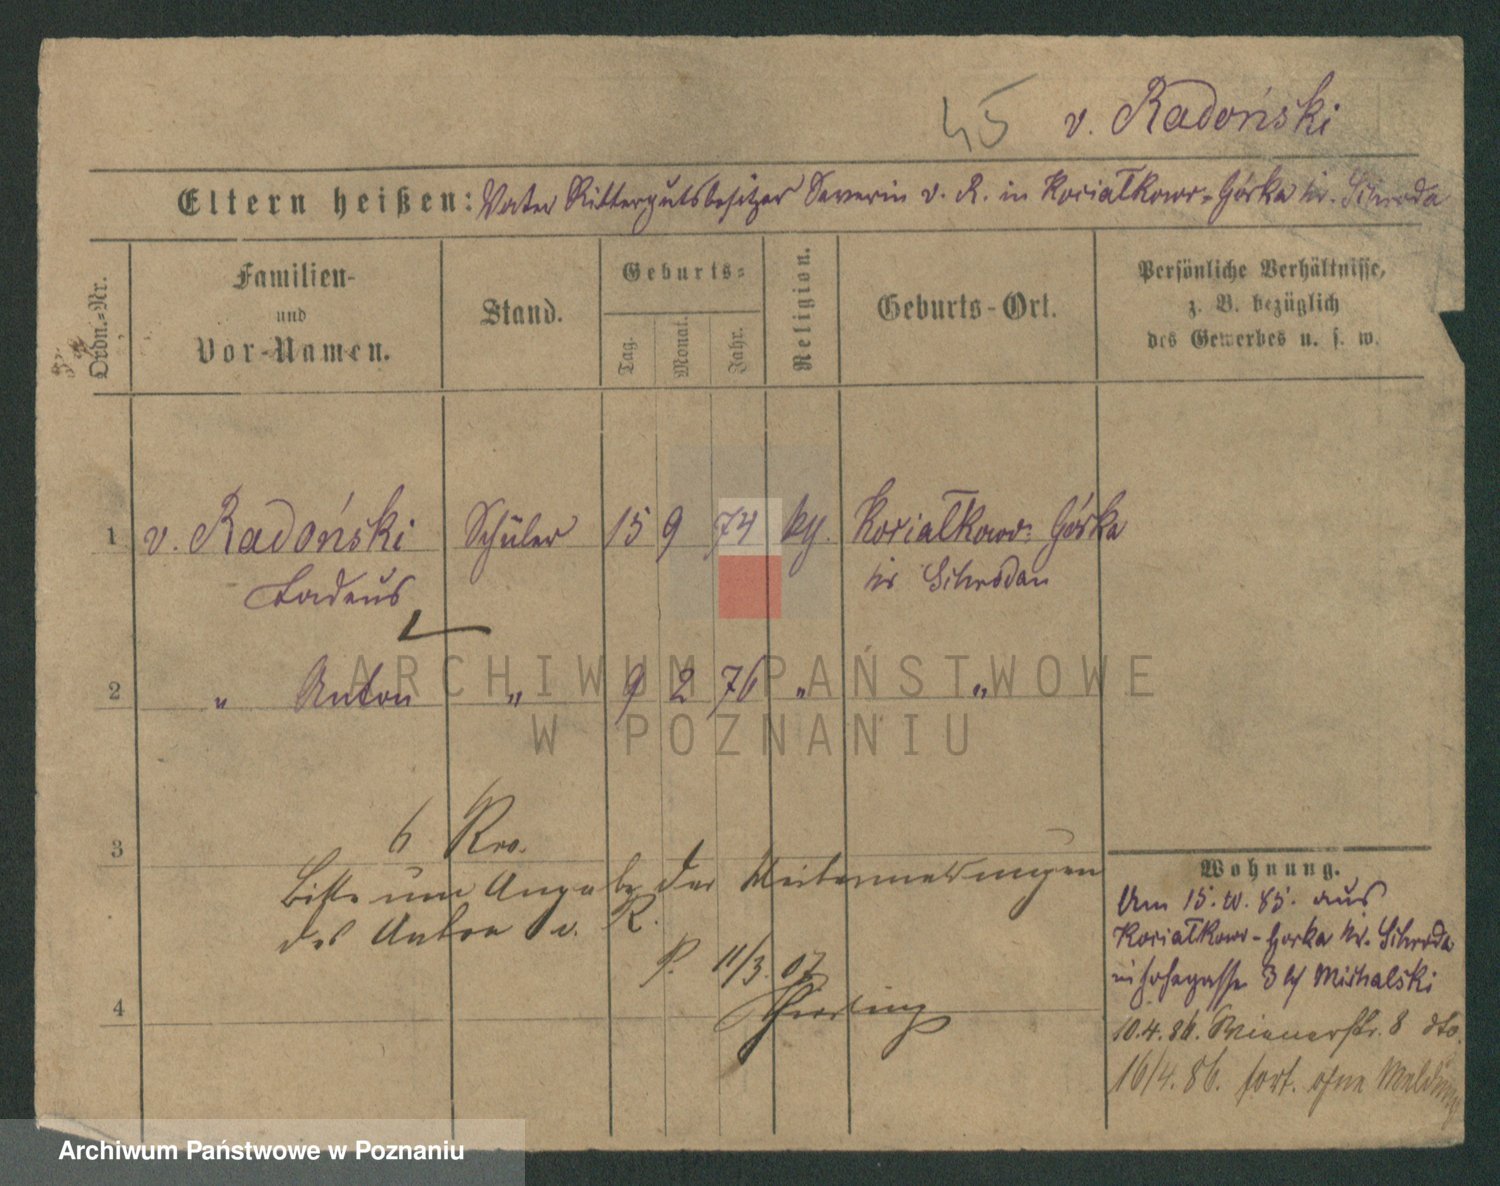 45 v. Radoński
Eltern heißen: Vater Rittergutsbesitzer Severin v. R. in Kociałkowo-Górka kr. Schroda
Ordn.-Nr.
Familien-
und
Vor-Namen.
Stand.
Geburts-
Tag.
Monat.
Jahr.
Religion.
Geburts-Ort.
Persönliche Verhältnisse,
z. B. bezüglich
des Gewerbes u. s. w.
1 v. Radoński Schüler 15 9 74 Kociałkowo Górka
Tadeus kr Schroda
2 " Anton " 9 2 76 " "
3
6
Bitte um Angabe der Weitermeldungen
des Anton v. R.
P. 11/3. 07
4
Wohnung.
Am 15. 85. aus
Kociałkowo-Gorka kr. Schroda
3 Michalski
10.4.86. Wienerstr. 8 dto.
16/4.86. fort. ohne Meldung
ARCHIWUM PAŃSTWOWE
W POZNANIU
Archiwum Państwowe w Poznaniu